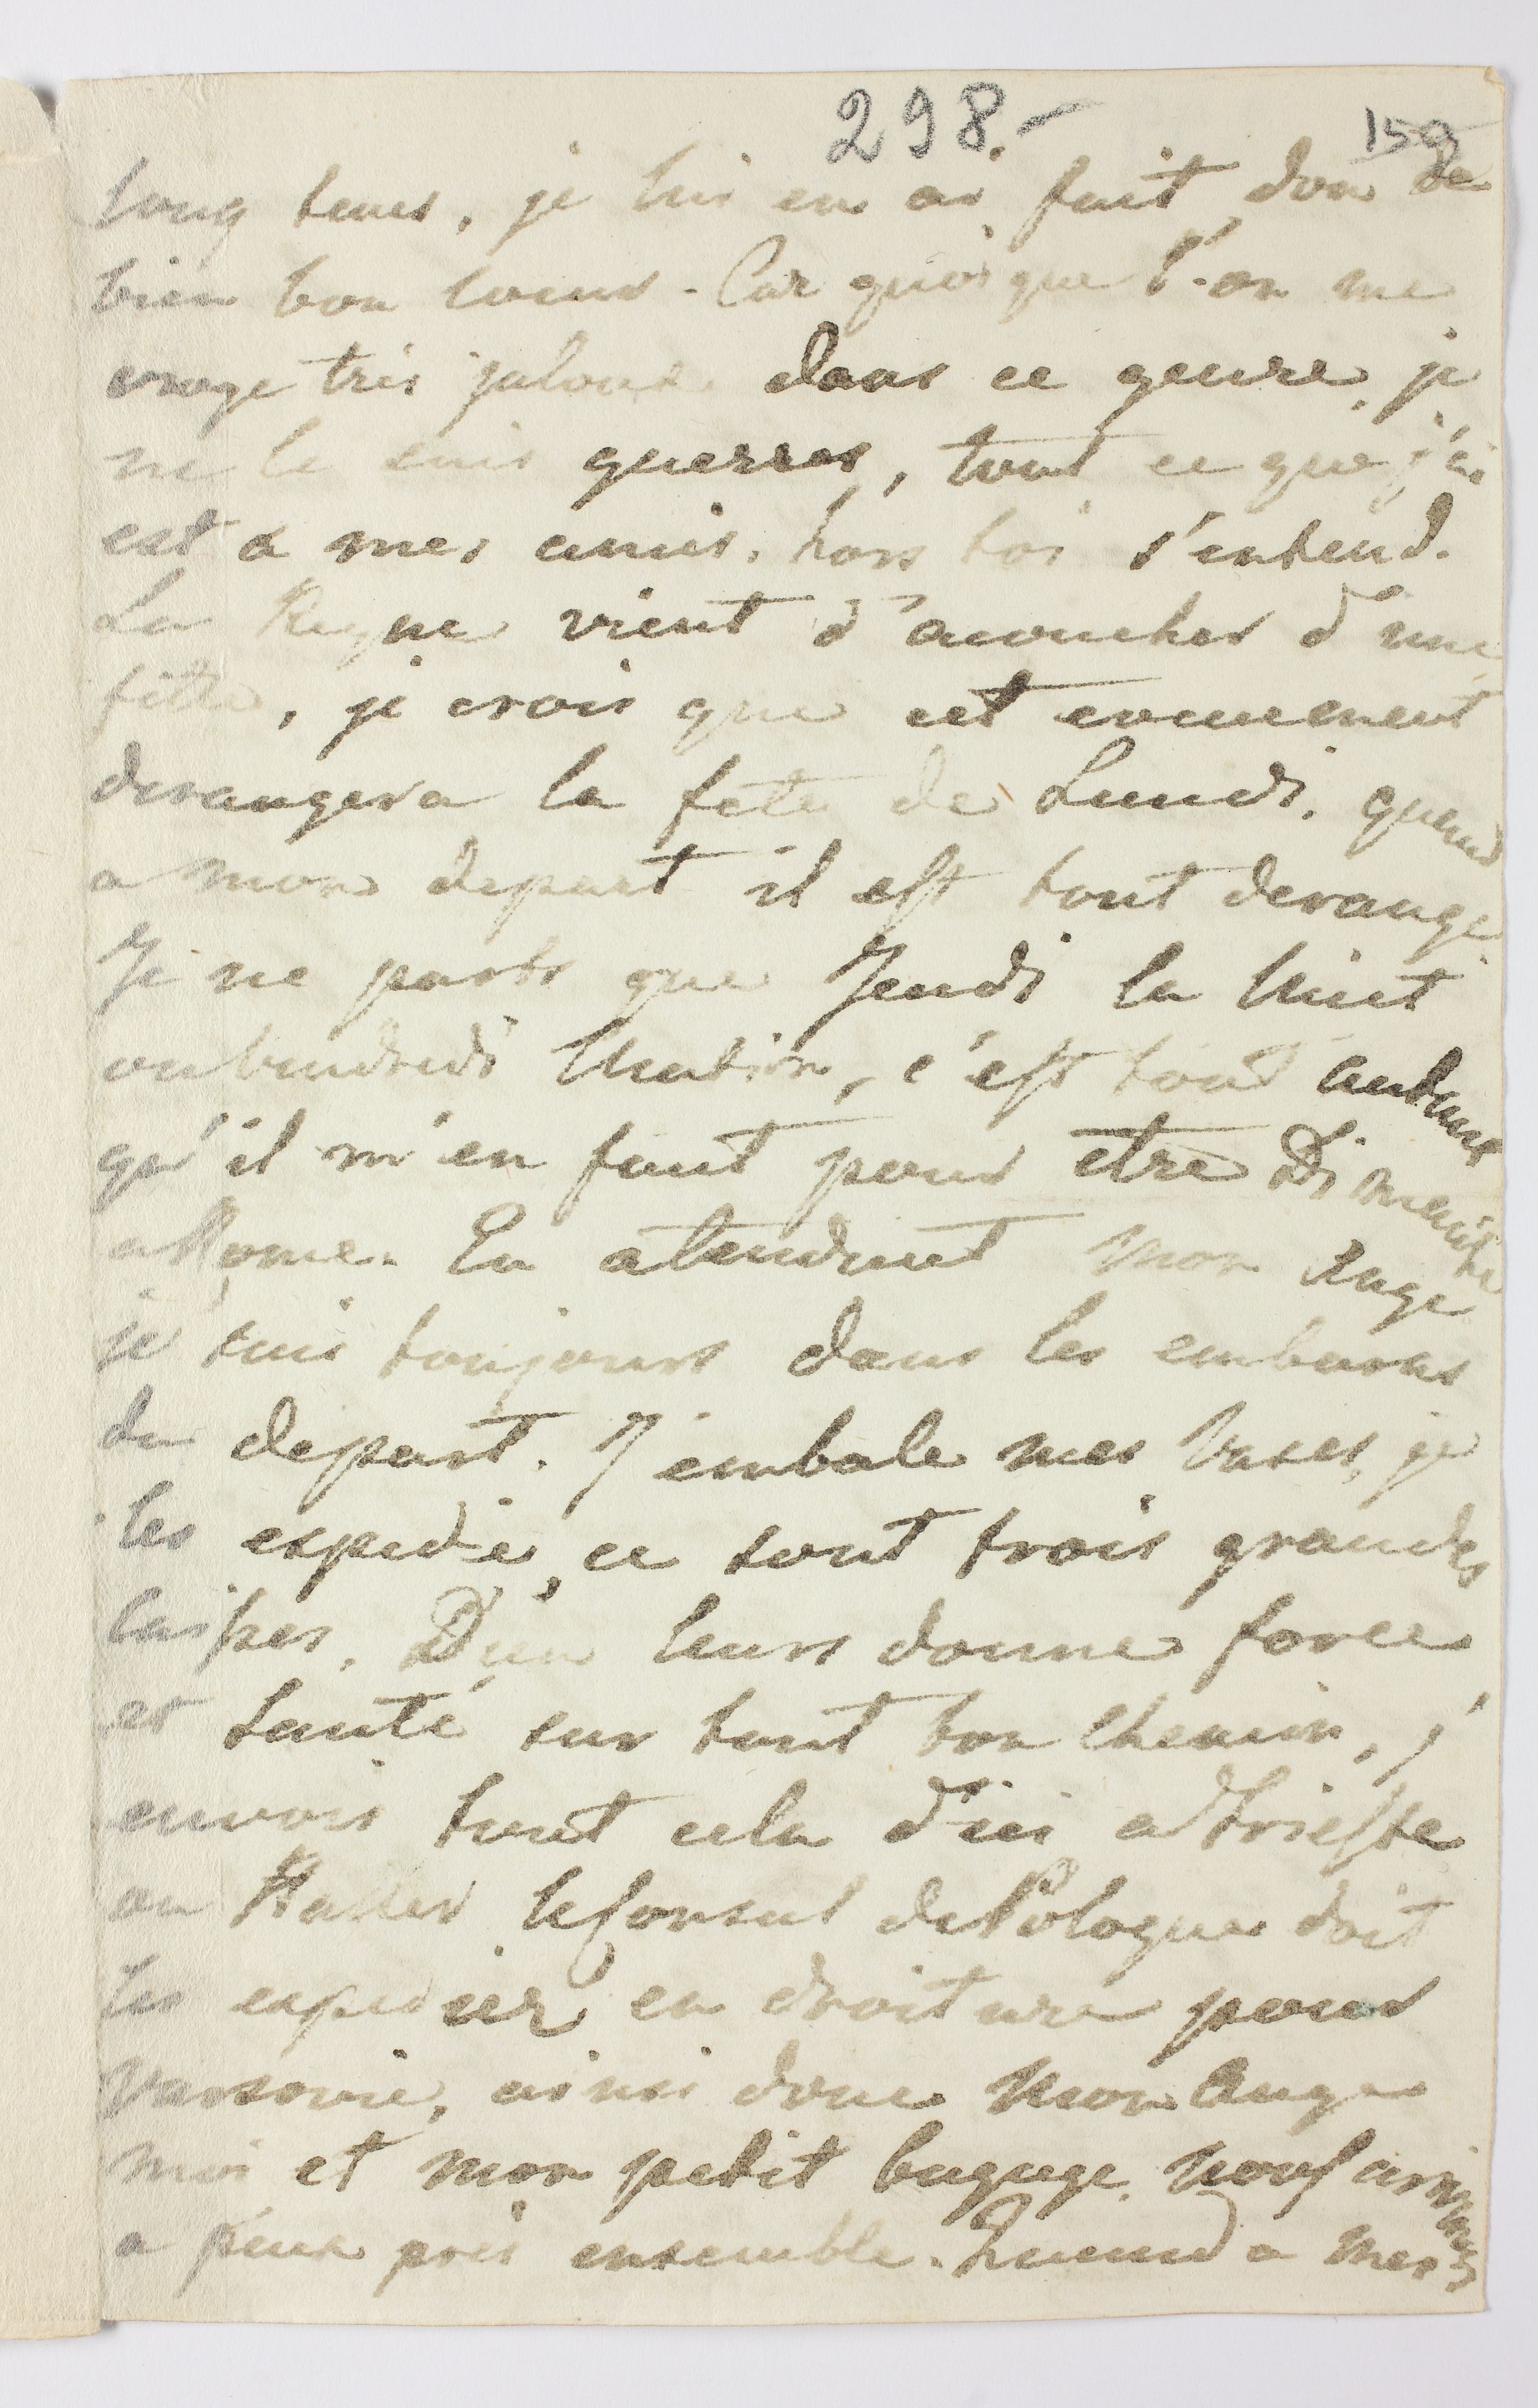 298.-
159
long tems, je lui en ai fait don de
bien bon coeur - Car quoique l'on me
croye très jalouse dans ce genre, je
ne le suis guerres, tout ce que j'ai
est a mes amis, hors toi s'entend.
La Reyne vient d'acoucher d'une
fille, je crois que cet evenement
derangera la fete de Lundi. quand
a mon depart il est tout derangé
Je ne parts que Jeudi la Nuit
ou Vendredi Matin, c'est tout autant
qu'il m'en faut pour etre Dimanche
a Rome. En atendant mon Ange
je suis toujours dans les embaras
du depart. J'embale mes Vases, je
les expedie, ce sont trois grandes
caisses. Dieu leurs donne force
et santé sur tout bon chemin, j'
envois tout cela d'ici a Trieste
ou le Consul de Pologne doit
les expedier en droiture pour
Varsovie, ainsi donc Mon Ange
moi et mon petit bagage, nous arriverons
a peux près ensemble. Quand a mes